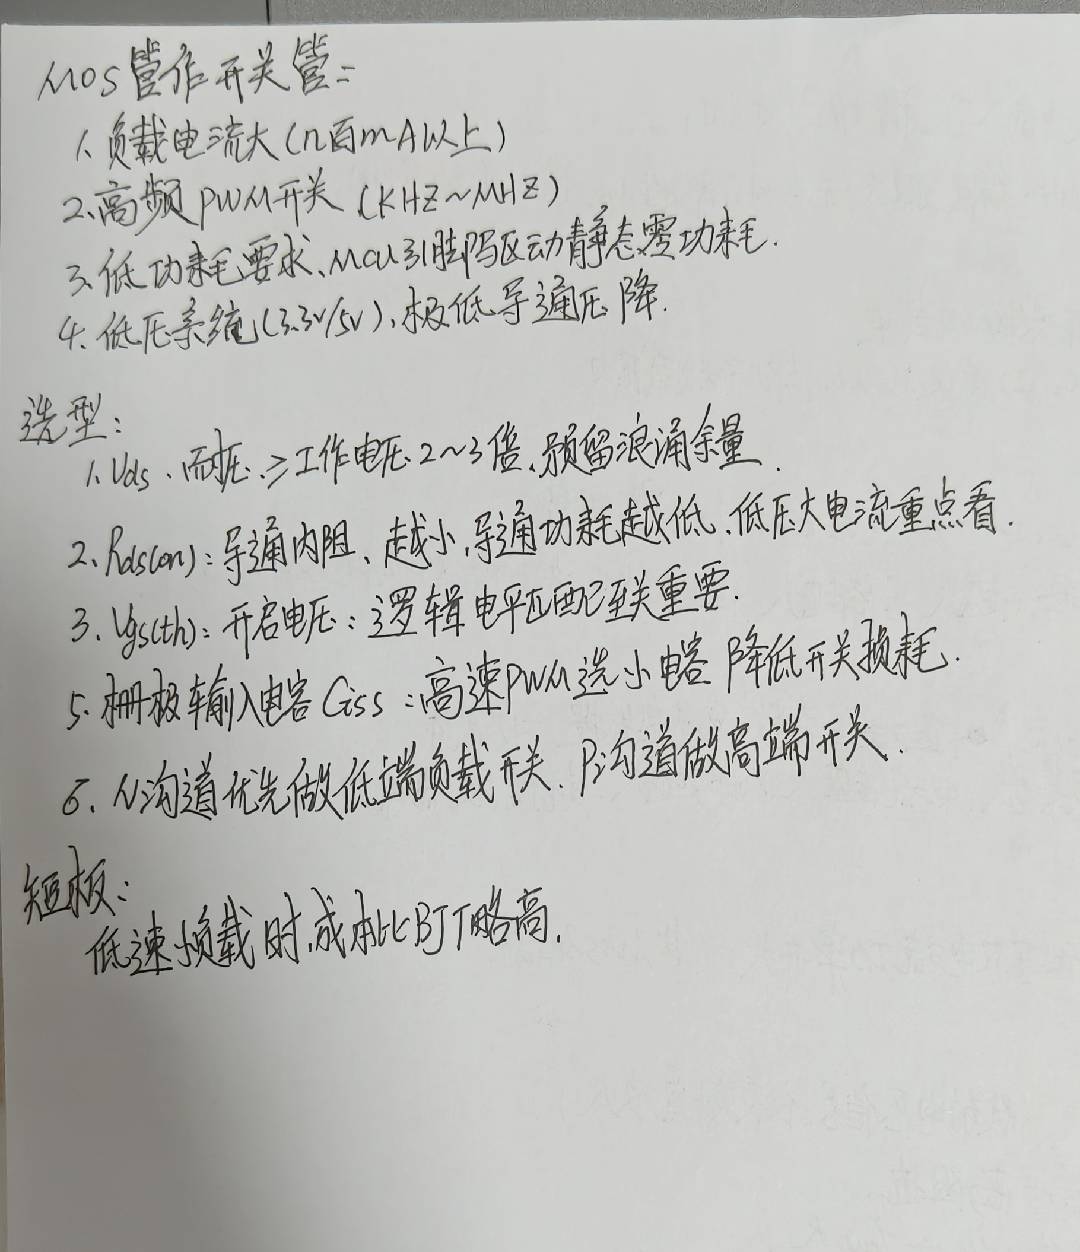 MOS管作开关管:
1、负载电流大(几百mA以上)
2、高频PWM开关(KHZ~MHZ)
3、低功耗要求、MCU引脚驱动静态零功耗.
4、低压系统(3.3V/5V)、极低导通压降.
选型:
1、Vds、耐压、≥工作电压2~3倍、预留浪涌余量.
2、Rds(on):导通内阻、越小,导通功耗越低、低压大电流重点看.
3、Vgs(th):开启电压:逻辑电平匹配至关重要.
5、栅极输入电容Ciss:高速PWM选小电容 降低开关损耗.
6、N沟道优先做低端负载开关、P沟道做高端开关.
短板:
低速小负载时,成本比BJT略高.